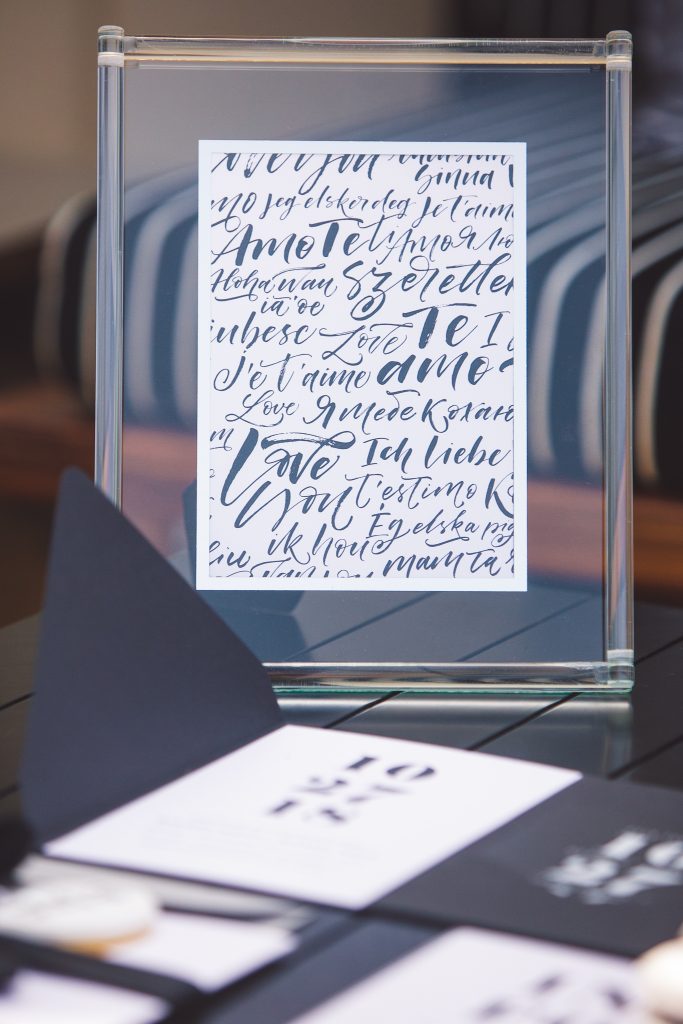 Love you
Sinua
mo Jeg elsker deg Je t'aime
Amo Te Amo Я лю
Aloha Wau Szeretle
ia 'oe
iubesc Love Te I
J'e t'aime amo
Love Я тебе Кохаю
m Love Ich liebe
you t'estimo
Ég elska þig
ik hou mam ta
10
27
18